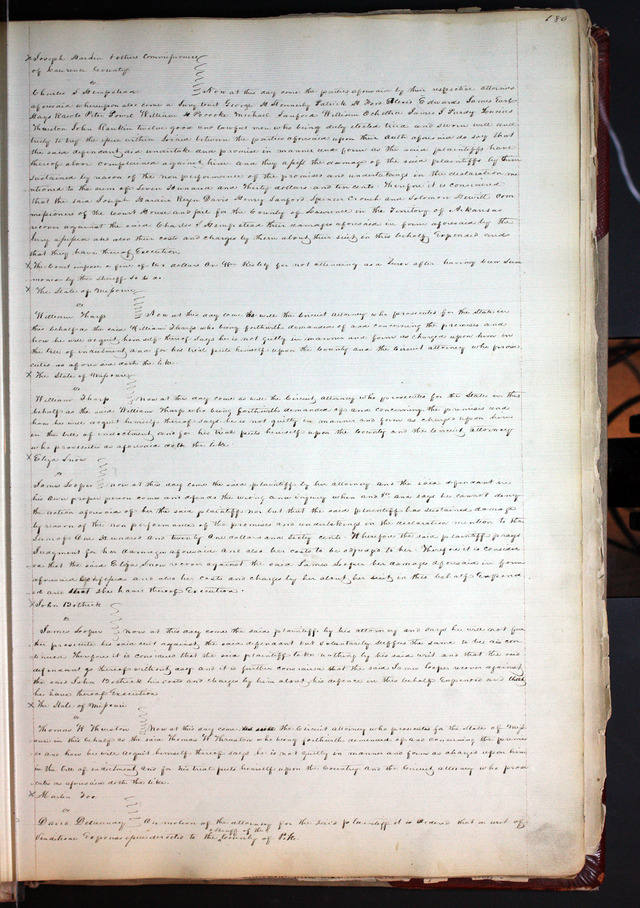 180
x Joseph Hardin & others Commissioners
of Lawrence County
vs
Charles S Hempstead Now at this day come the parties aforesaid by their respective attornies
aforesaid whereupon also come a Jury towit George H Kennerly Patrick H Ford Alexis Edwards James
Hays Peter Powel William H Michael Sanford William James J Purdy
Thruston John Rankin twelve good and lawful men who being duly elected tried and sworn well and
truly to try the issue within Joined between the parties aforesaid upon their oath aforesaid do say that
the said defendant did undertake and promise in manner and form as the said plaintiffs have
thereof above complained against him and they assess the damage of the said plaintiffs by them
sustained by reason of the non performance of the promises and undertakings in the declaration me
ntioned to the sum of Seven Hundred and Thirty dollars and ten cents Therefore it is considered
that the said Joseph Hardin Rezin Davis Henry Sanford Spencer Crouch and Solomon Hewitt com
missioners of the Court House and jail for the County of Lawrence in the Territory of Arkansas
recover against the said Charles S Hempstead their damages aforesaid in form aforesaid by the
Jury assessed and also their costs and charges by them about their suit in this behalf Expended and
that they have thereof Execution
x The Court impose a fine of two dollars on Wm for not attending as a Juror after having been Sum
moned by the Sheriff so to do
x The State of Missouri
vs
William Tharp Now at this day come as well the Circuit Attorney who prosecutes for the State in
this behalf as the said William Tharp who being forthwith demanded of and concerning the premises and
how he will acquit himself thereof says he is not guilty in manner and form as charged upon him in
the bill of indictment and for his trial puts himself upon the Country and the Circuit attorney who prose
cutes as aforesaid doth the like
x The State of Missouri
vs
William Tharp Now at this day come as well the Circuit attorney who prosecutes for the State in this
behalf as the said William Tharp who being forthwith demanded of and concerning the premises and
how he will acquit himself thereof says he is not guilty in manner and form as charged upon him
in the bill of indictment and for his trial puts himself upon the Country and the Circuit attorney
who prosecutes as aforesaid doth the like
x Eliza Snow
vs
James Looper now at this day come the said plaintiff by her attorney and the said defendant in
his own proper person come and defends the wrong and injury when and &c and says he cannot deny
the action aforesaid of her the said plaintiff nor but that the said plaintiff has sustained damage
by reason of the non performance of the promises and undertakings in the declaration mention to the
sum of One Hundred and twenty One dollars and Sixty cents Wherefore the said plaintiff prays
Judgment for her damages aforesaid and also her costs to be adjudged to her Therefore it is consider
ed that the said Eliza Snow recover against the said James Looper her damages aforesaid in form
aforesaid and also her costs and charges by her about her suit in this behalf Expend
ed and that she have thereof Execution
x John Bostick
vs
James Looper now at this day come the said plaintiff by his attorney and says he will not fur
ther prosecute his said suit against the said defendant but voluntarily suffers the same to be dis con
tinued Therefore it is considered that the said plaintiff take nothing by his said writ and that the said
defendant go thereof without day and it is further considered that the said James Looper recover against
the said John Bostick his costs and charges by him about his defence in this behalf Expended and that
he have thereof Execution
x The State of Missouri
vs
Thomas R Thruston Now at this day come as well the Circuit attorney who prosecutes for the State of Miss
ouri in this behalf as the said Thomas R Thruston who being forthwith demanded of and concerning the premis
es and how he will acquit himself thereof says he is not guilty in manner and form as charged upon him
in the bill of indictment and for his trial puts himself upon the Country and the Circuit attorney who prose
cutes as aforesaid doth the like
x Martin
vs
David Delaunay On motion of the attorney for the said plaintiff it is ordered that a writ of
Venditioni Exponas issue directed to the Sheriff of the County of Pike